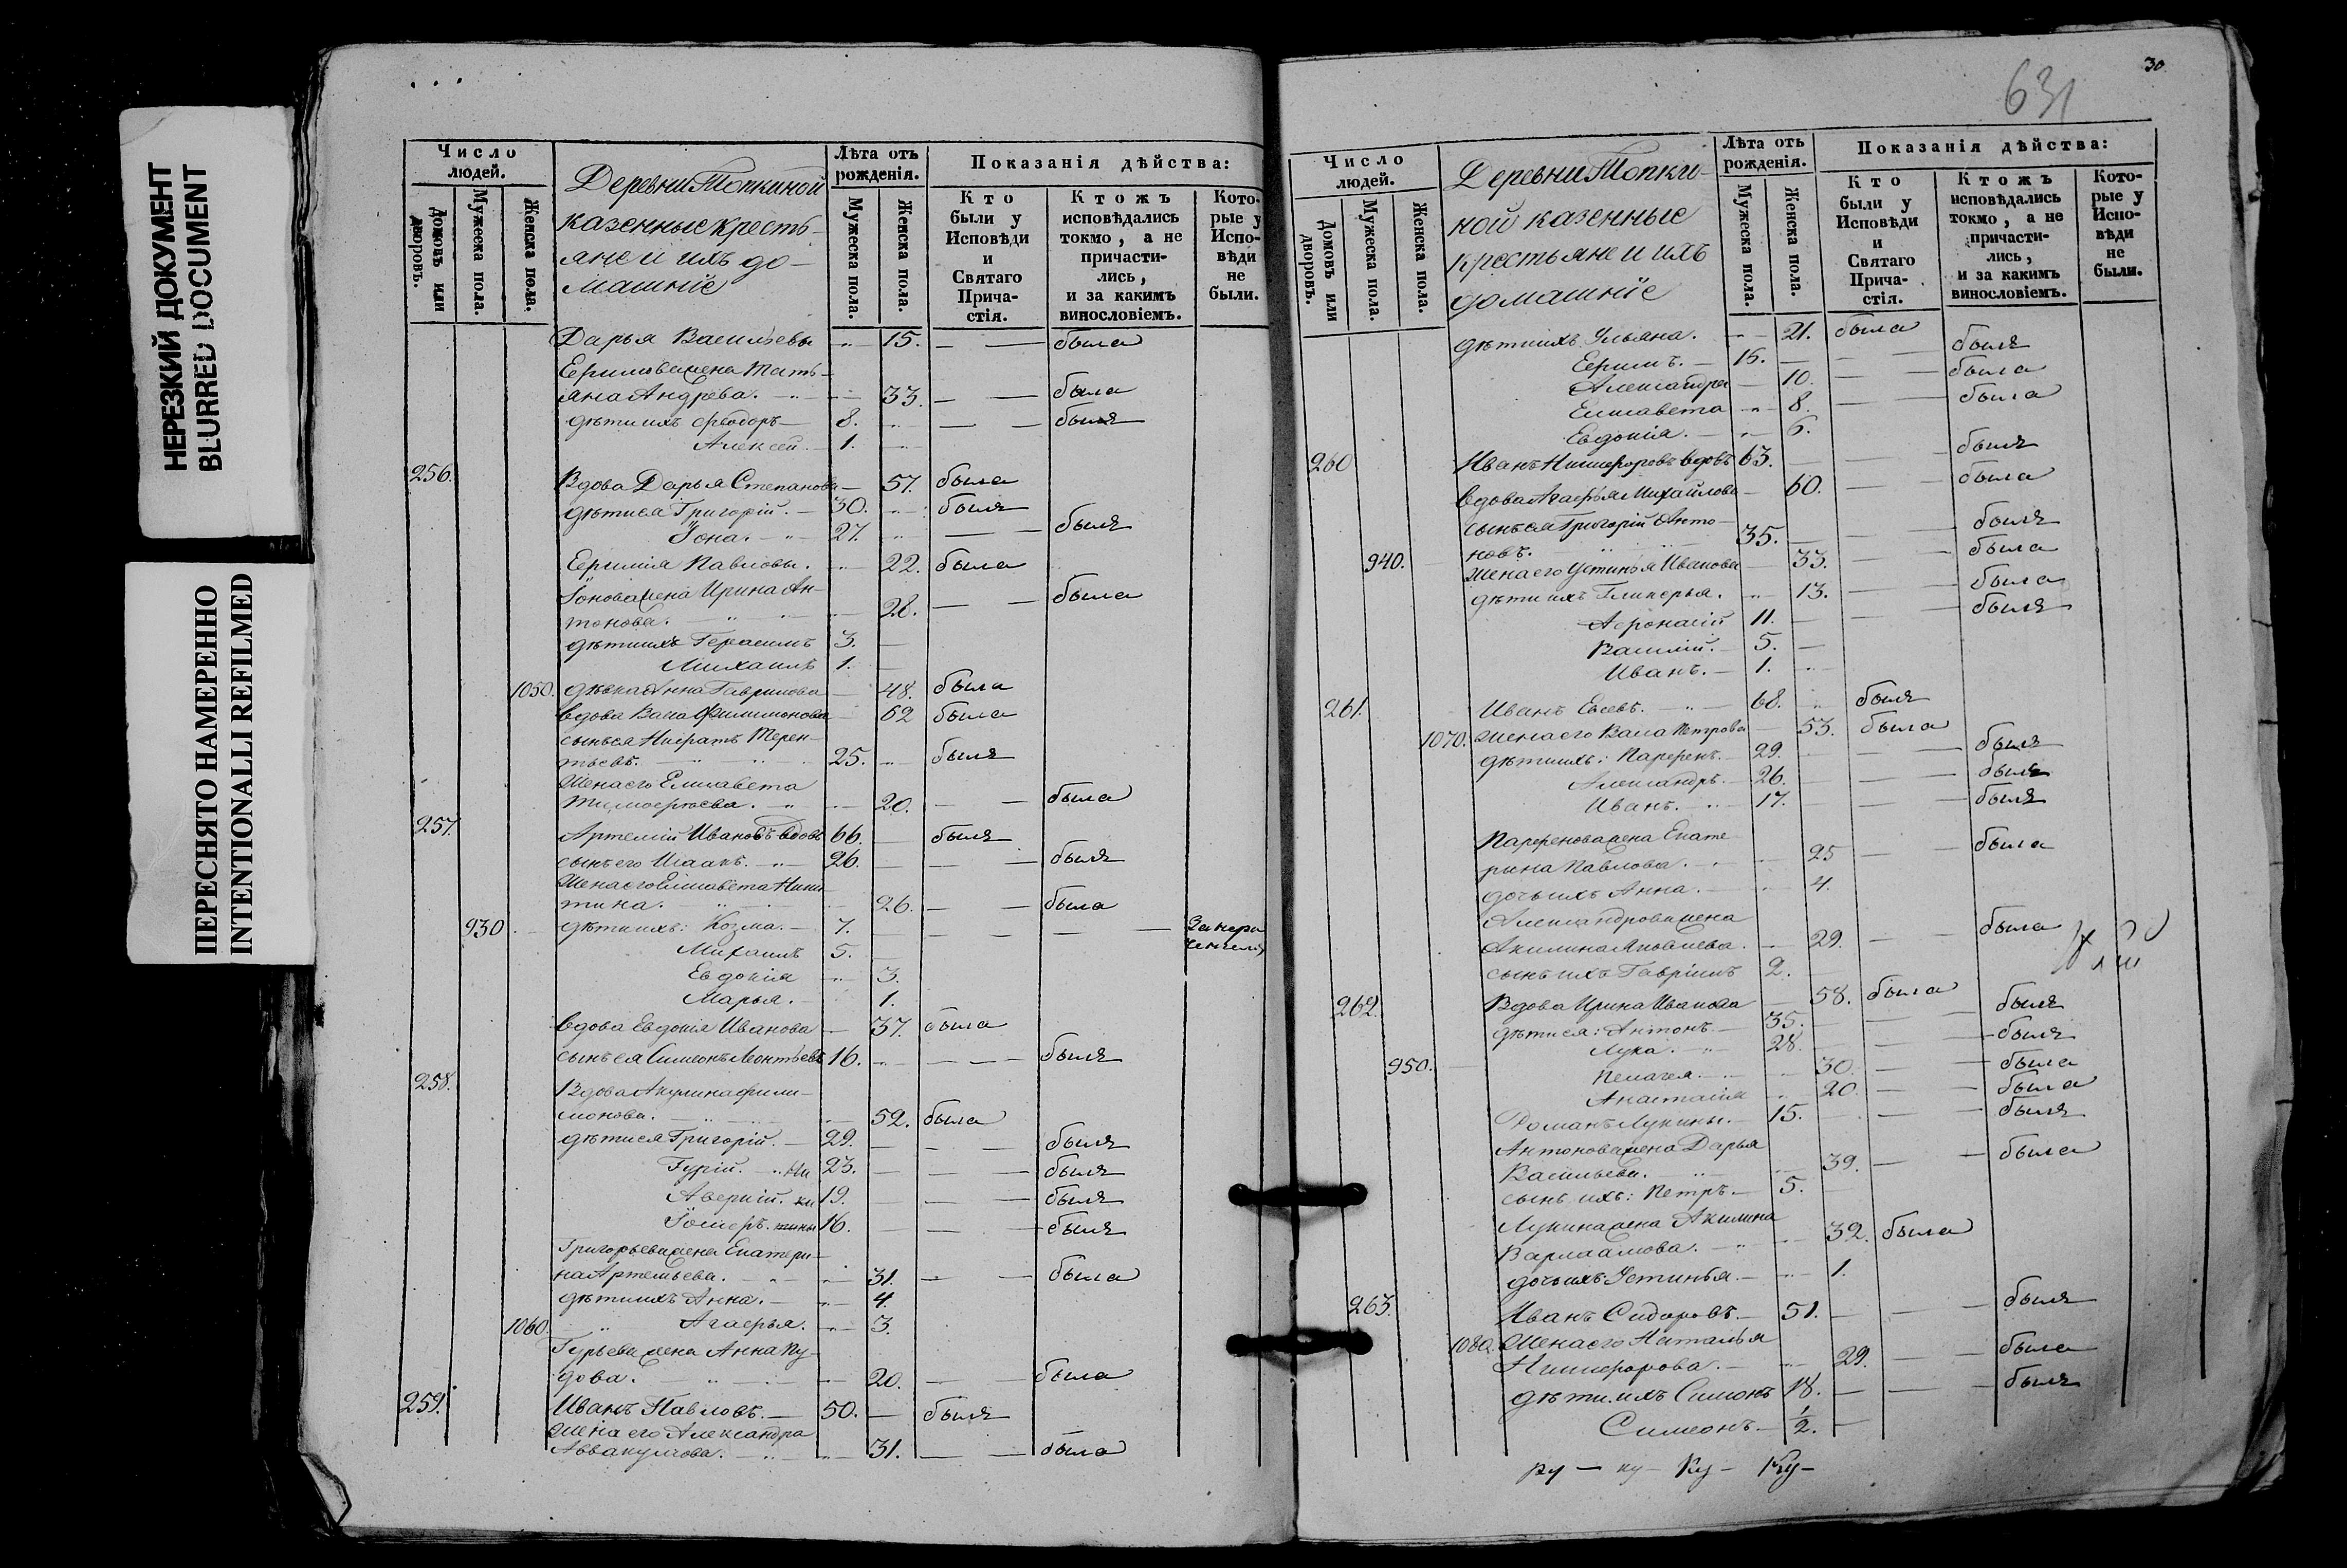 НЕРЕЗКИЙ ДОКУМЕНТ
BLURRED DOCUMENT
ПЕРЕСНЯТО НАМЕРЕННО
INTENTIONALLI REFILMED
Число людей.
Домовъ или дворовъ.
Мужеска пола.
Женска пола.
Деревни Топкиной
казенные кресть-
яне и ихъ до-
машніе
Лѣта отъ рожденія.
Мужеска пола.
Женска пола.
Показанія дѣйства:
Кто были у Исповѣди и Святаго Прича-стія.
Ктожъ исповѣдались токмо, а не причасти-лись, и за какимъ винословіемъ.
Кото-рые у Испо-вѣди не были.
Дарья Васильевы 15. была
Ефимова жена Тать-
яна Андрѣева. 33. была
дѣти ихъ Ѳеодоръ 8. былъ
Алексѣй 1.
256. Вдова Дарья Степанова 57. была
дѣти ея Григорій. 30. былъ
Іона. 27. былъ
Ефимія Павловы. 22. была
Іонова жена Ирина Ан-
тонова. 28. была
дѣти ихъ Герасимъ 3.
Михаилъ 1.
1050. дѣвка Анна Гаврилова 48. была
вдова Васа Филимонова 62 была
сынъ ея Терен-
тьевъ. 25. былъ
Жена его Елисавета
Тимоѳеева. 20. была
257. Артемій Ивановъ вдовъ 66. былъ
сынъ его Исаакъ. 26. былъ
Жена его Елисавета Ники-
тина. 26. была
930 дѣти ихъ: Козма. 7.
Михаилъ 5.
Евдокія 3.
Марья. 1.
вдова Евдокія Иванова 37. была
сынъ ея Симеонъ Леонтьевъ 16. былъ
258. Вдова Акулина Фили-
монова. 52. была
дѣти ея Григорій. 29. былъ
Гурій. Ни 23. былъ
Аверкій. ки 19. былъ
Іосифъ. тины 16. былъ
Григорьева жена Екатери-
на Артемьева. 31. была
дѣти ихъ Анна. 4.
1060. Агафья. 3.
Гурьева жена Анна Ку-
дова. 20. была
259. Иванъ Павловъ. 50. былъ
Жена его Александра
Аввакумова. 31. была
631
30
Число людей.
Домовъ или дворовъ.
Мужеска пола.
Женска пола.
Деревни Топки-
ной казенные
крестьяне и ихъ
домашніе
Лѣта отъ рожденія.
Мужеска пола.
Женска пола.
Показанія дѣйства:
Кто были у Исповѣди и Святаго Прича-стія.
Ктожъ исповѣдались токмо, а не причасти-лись, и за какимъ винословіемъ.
Кото-рые у Испо-вѣди не были.
дѣти ихъ Ульяна. 21. была
Ефимъ. 15. былъ
Александра 10. была
Елисавета 8. была
Евдокія. 6.
260 Иванъ Никифоровъ вдовъ 63. былъ
вдова Агафья Михайлова 60. была
сынъ ея Григорій Анто-
новъ. 35. былъ
940. Жена его Устинья Иванова 33. была
дѣти ихъ Гликерья. 13. была
Аѳонасій 11. былъ
Василій. 5.
Иванъ. 1.
261. Иванъ Евсевъ. 68. былъ
1070. Жена его Васа Петрова 53. была
дѣти ихъ: Парфенъ. 29. былъ
Александръ. 26. былъ
Иванъ. 17. былъ
Парфенова жена Екате-
рина Павлова. 25 была
дочь ихъ Анна. 4.
Александрова жена
Акилина Яковлева. 29. была
сынъ ихъ Гавріилъ 2.
262. Вдова Ирина Иванова 58. была
дѣти ея: Антонъ. 35. былъ
Лука. 28. былъ
950. Пелагея. 30. была
Анастасія 20. была
Романъ Лукины. 15. былъ
Антонова жена Дарья
Васильева. 39. была
сынъ ихъ: Петръ. 5.
Лукина жена Акилина
Варлаамова. 32. была
дочь ихъ Устинья. 1.
263. Иванъ Сидоровъ. 51. былъ
1080. Жена его Наталья
Никифорова. 29. была
дѣти ихъ Симонъ 18. былъ
Симеонъ 1/2.
ку — ку — Ку — Ку —